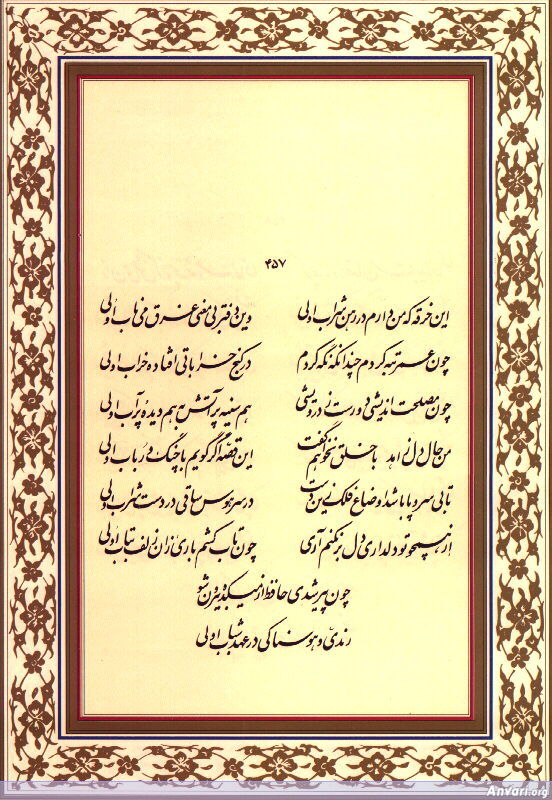 ۴۵۷
این خرقه که من دارم در رهن شراب اولی	وین دفتر بی معنی غرق می ناب اولی
چون عمر تبه کردم چندانکه نگه کردم	در کنج خراباتی افتاده خراب اولی
چون مصلحت اندیشی دورست ز درویشی	هم سینه پر آتش به هم دیده پر آب اولی
من حال دل زاهد با خلق نخواهم گفت	این قصه اگر گویم با چنگ و رباب اولی
تا بی سر و پا باشد اوضاع فلک زین دست	در سر هوس ساقی در دست شراب اولی
از همچو تو دلداری دل بر نکنم آری	چون تاب کشم باری زان زلف بتاب اولی
چون پیر شدی حافظ از میکده بیرون شو
رندی و هوسناکی در عهد شباب اولی
Anvari.org